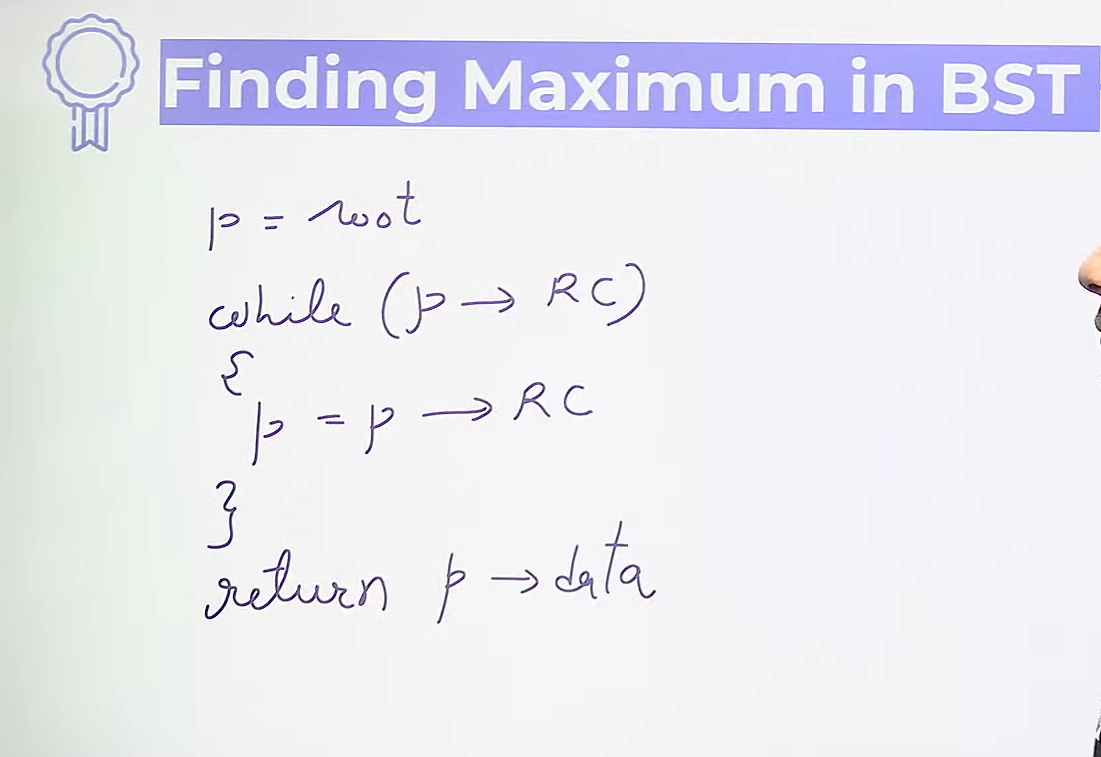 Finding Maximum in BST
p = root
while (p → RC)
{
p = p → RC
}
return p → data